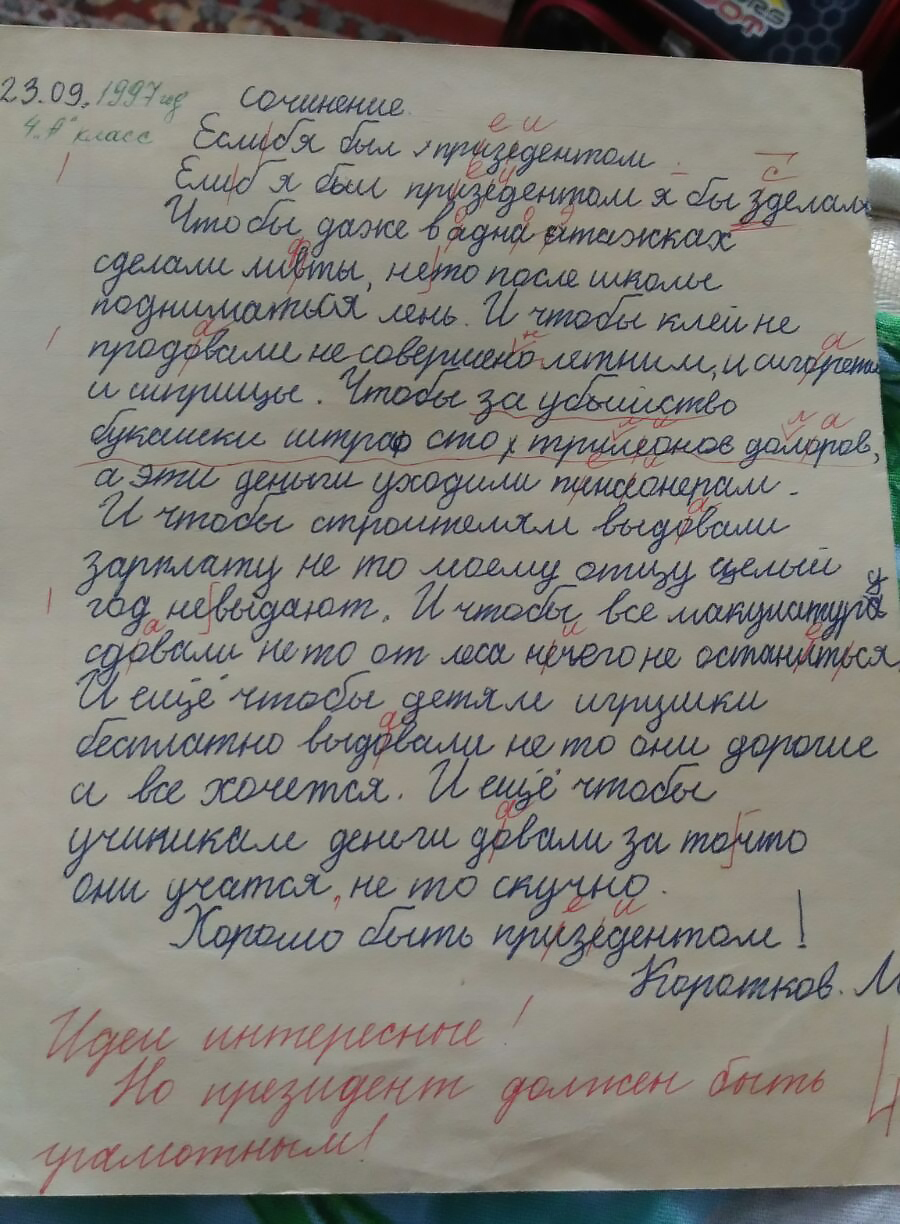 23.09.1997 год Сочинение.
4 "А" класс
Еслибя был призедентом
Елиб я был призедентом я бы зделал
Чтобы даже в адна атажках
сделали ливты, нето после школы
подниматься лень. И чтобы клей не
продовали не совершено летним, и сигореты
и шприцы. Чтобы за убийство
букашки штраф сто трилеонов долоров,
а эти деньги уходили пинсионерам.
И чтобы строителям выдовали
зарплату не то моему отцу целый
год невыдают. И чтобы все макулатуру
сдовали нето от леса нечего не останиться,
И ещё чтобы детям игрушки
бесплатно выдовали не то они дорогие
а все хочется. И ещё чтобы
учиникам деньги довали за точто
они учатся, не то скучно.
Хорошо быть призедентом!
Коротков. М
Идеи интересные!
Но президент должен быть
грамотным!
4